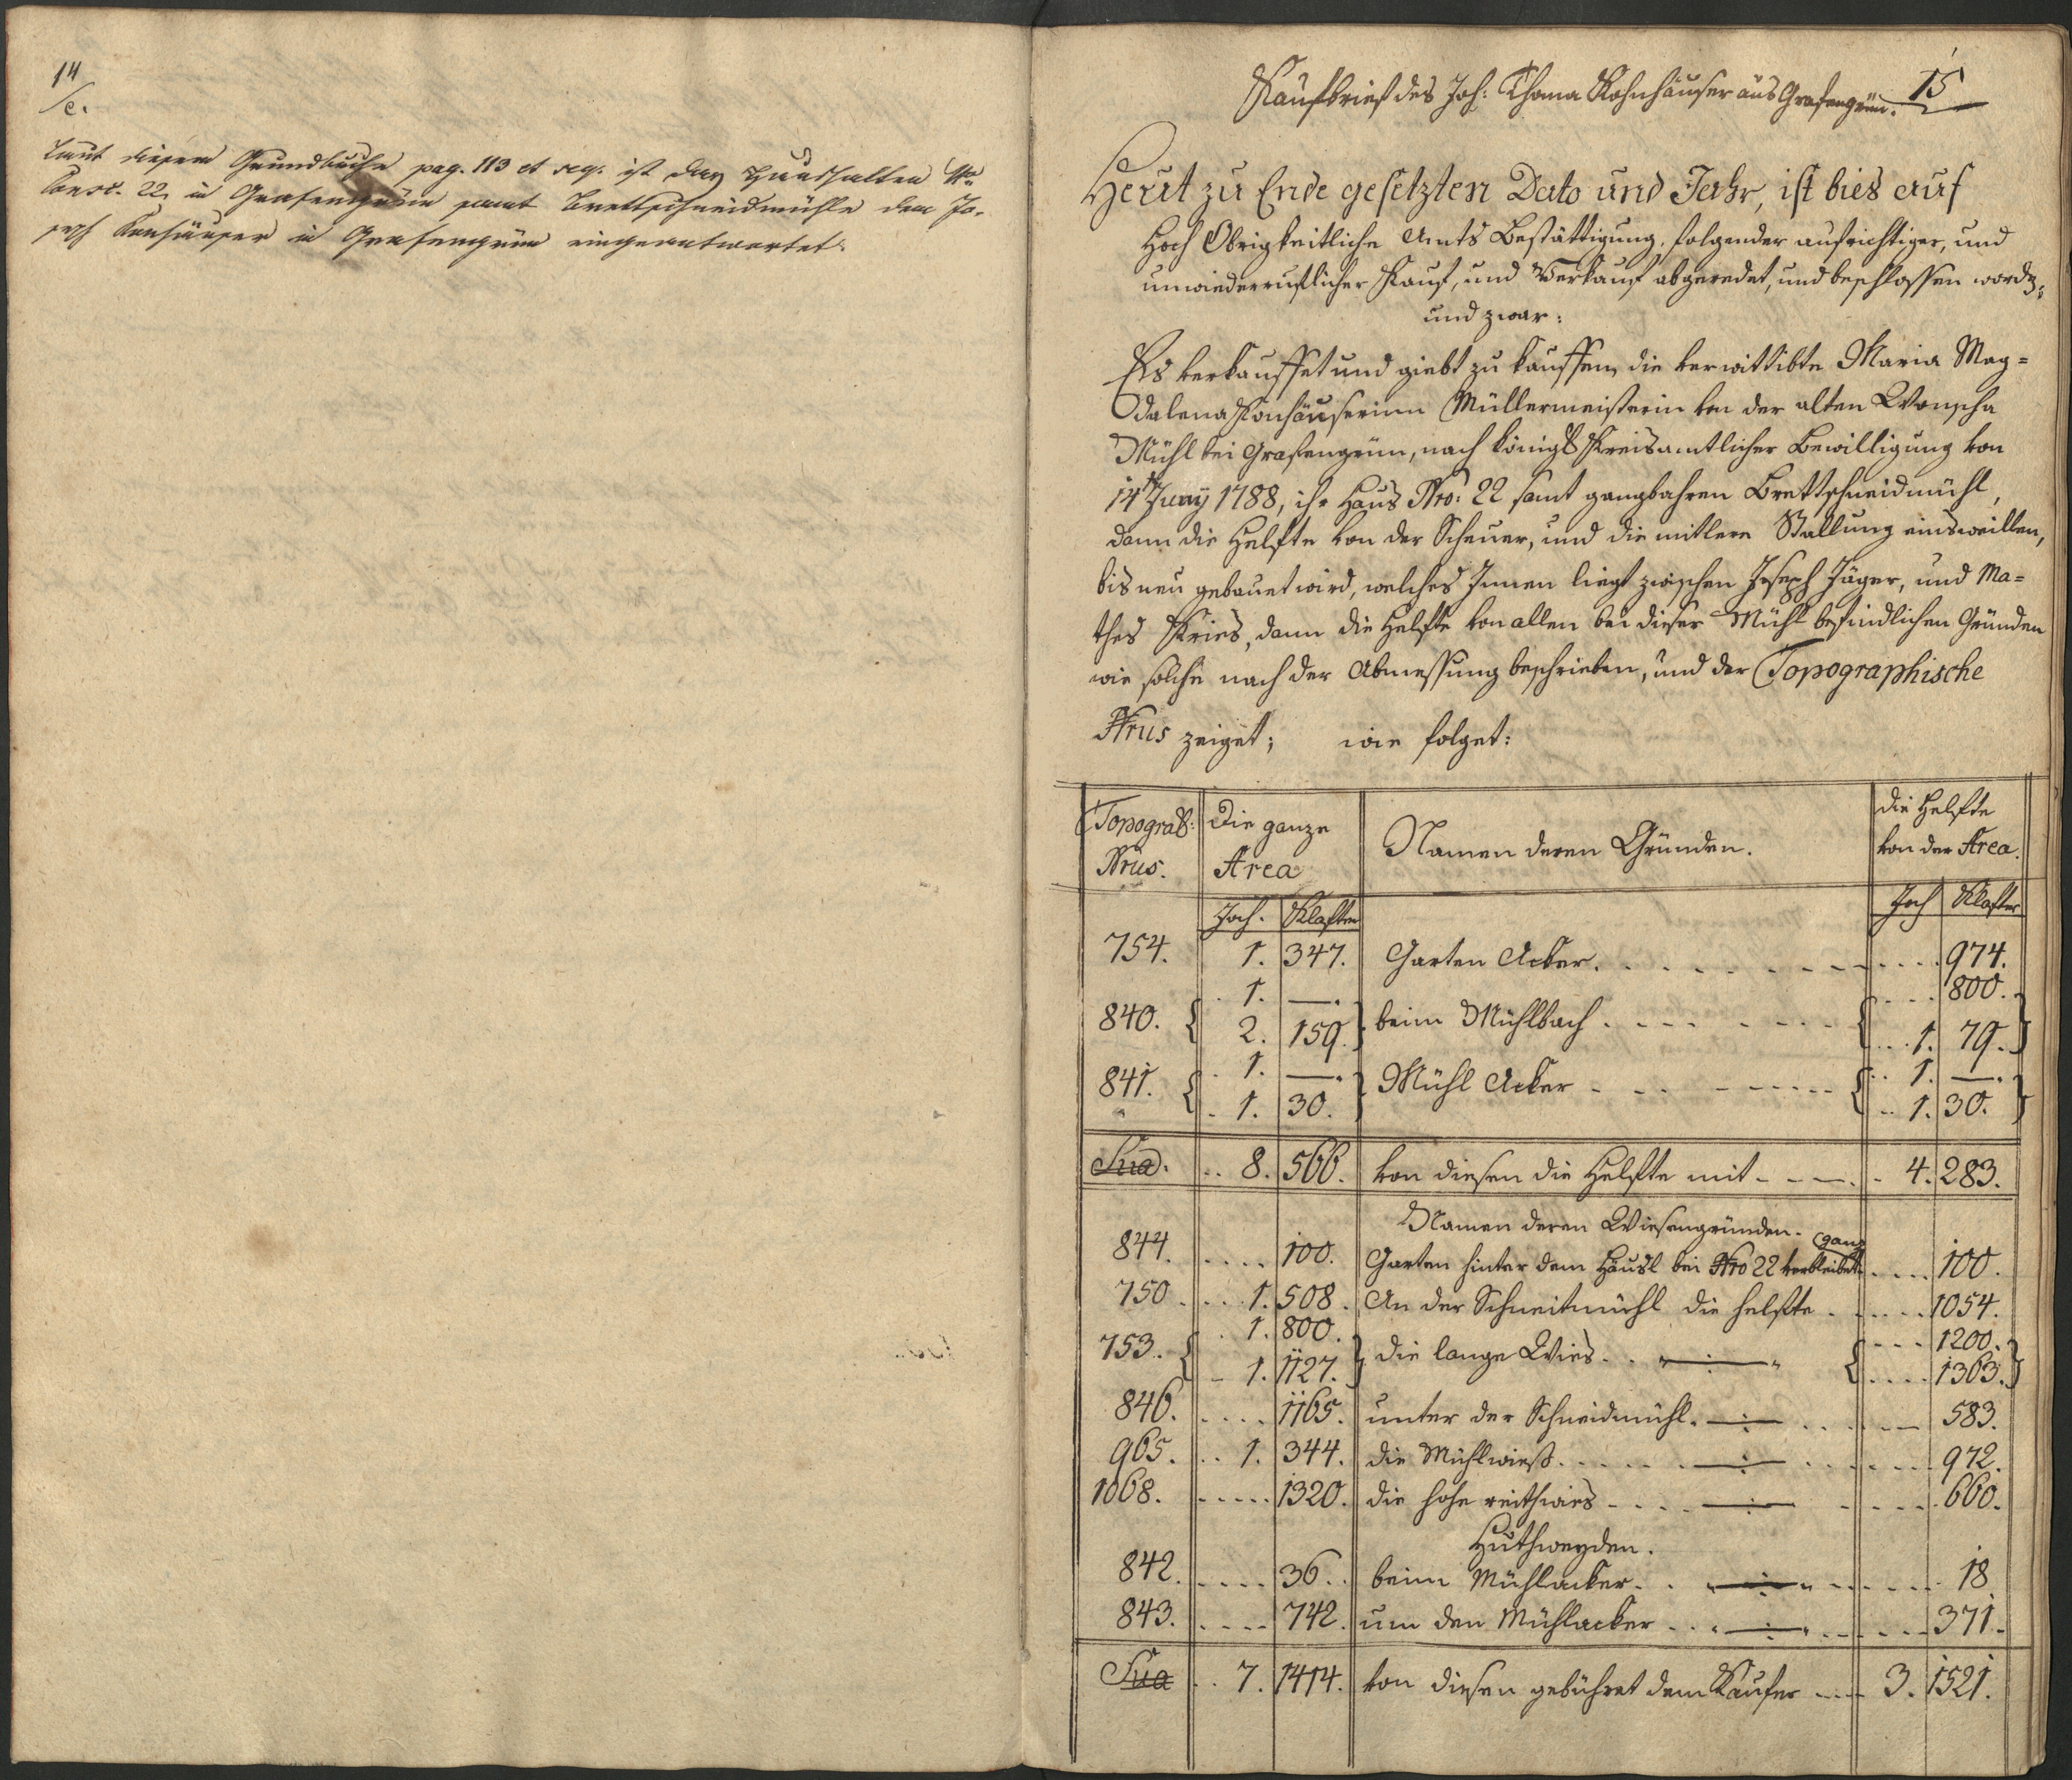 14
/c.
Laut diesem Grundbuche pag. 113 et seq. ist das Haushalten Nro
Consc. 22, in Grafengrün samt Brettschneidmühle dem Jo-
seph Konhäuser in Grafengrün eingeantwortet.
Kaufbrief des Joh: Thoma Kohnhäuser aus Grafengrün. 15
Heut zu Ende gesetzten Dato und Jahr, ist bies auf
Hoch Obrigkeitliche Amts Bestättigung, folgender aufrichtiger, und
unwiederruflicher Kauf, und Verkauf abgeredet, und beschlossen worden;
und zwar:
Es verkauffet und giebt zu kauffen, die verwittibte Maria Mag=
dalena Konhäuserinn Müllermeisterin von der alten Wonscha
Mühl bei Grafengrün, nach königl Kreisamtlicher Bewilligung von
14t Juny 1788, ihr Haus Nro: 22 samt gangbahren Brettschneidmühl,
dann die Helfte von der Scheuer, und die mitlere Stallung einsweillen,
bis neu gebauet wird, welches Innen liegt zwischen Joseph Jäger, und Ma=
thes Kries, dann die Helfte von allen bei dieser Mühl befindlichen Gründen
wie solche nach der Abmessung beschrieben, und der Topographische
Nrus zeiget; wie folget:
Topogral: Nrus. Die ganze Area Namen deren Gründen. die Helfte von der Area.
Joch. Klafter Joch Klafter
754. 1. 347. Garten Acker. 974.
840. { 1. —. } beim Mühlbach { 800.
2. 159. 1. 79. }
841. { 1. —. } Mühl Acker { 1. —.
1. 30. 1. 30. }
Sua. 8. 566. von diesen die Helfte mit 4. 283.
Namen deren Wiesengründen.
844. 100. Garten hinter dem Häusl bei Nro 22 verbleibet ganz 100.
750. 1. 508. An der Schneitmühl die helfte 1054.
753. { 1. 800. } die lange Wies. „ —:— „ { 1200.
1. 1127. 1363. }
846. 1165. unter der Schneidmühl. —:— 583.
965. 1. 344. die Mühlwieß. —:— 972.
1068. 1320. die hohe reithwies —:— 660.
Huthweyden.
842. 36. beim Mühlacker. „ —:— „ 18
843. 742. um den Mühlacker „ —:— „ 371.
Sua 7. 1414. von diesen gebühret dem Käufer 3. 1521.